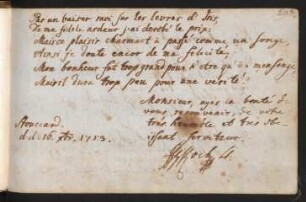 Par un baiser ravi sur les levres d'Iris,
De ma fidele ardeur j'ai derobé le prix;
Mais ce plaisir charmant a passé comme un songe,
Ainsi je doute encor de ma felicité;
Mon bonheur fut trop grand pour n'etre qu'un mensonge,
Mais il dura trop peu pour une verité.
Monsieur, ayez la bonté de
vous ressouvenir, de votre
tres humble et tres ob
eissant serviteur.
d. 16. 1753.